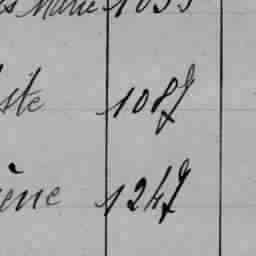 Marie 1033
ste 1087
ène 1247